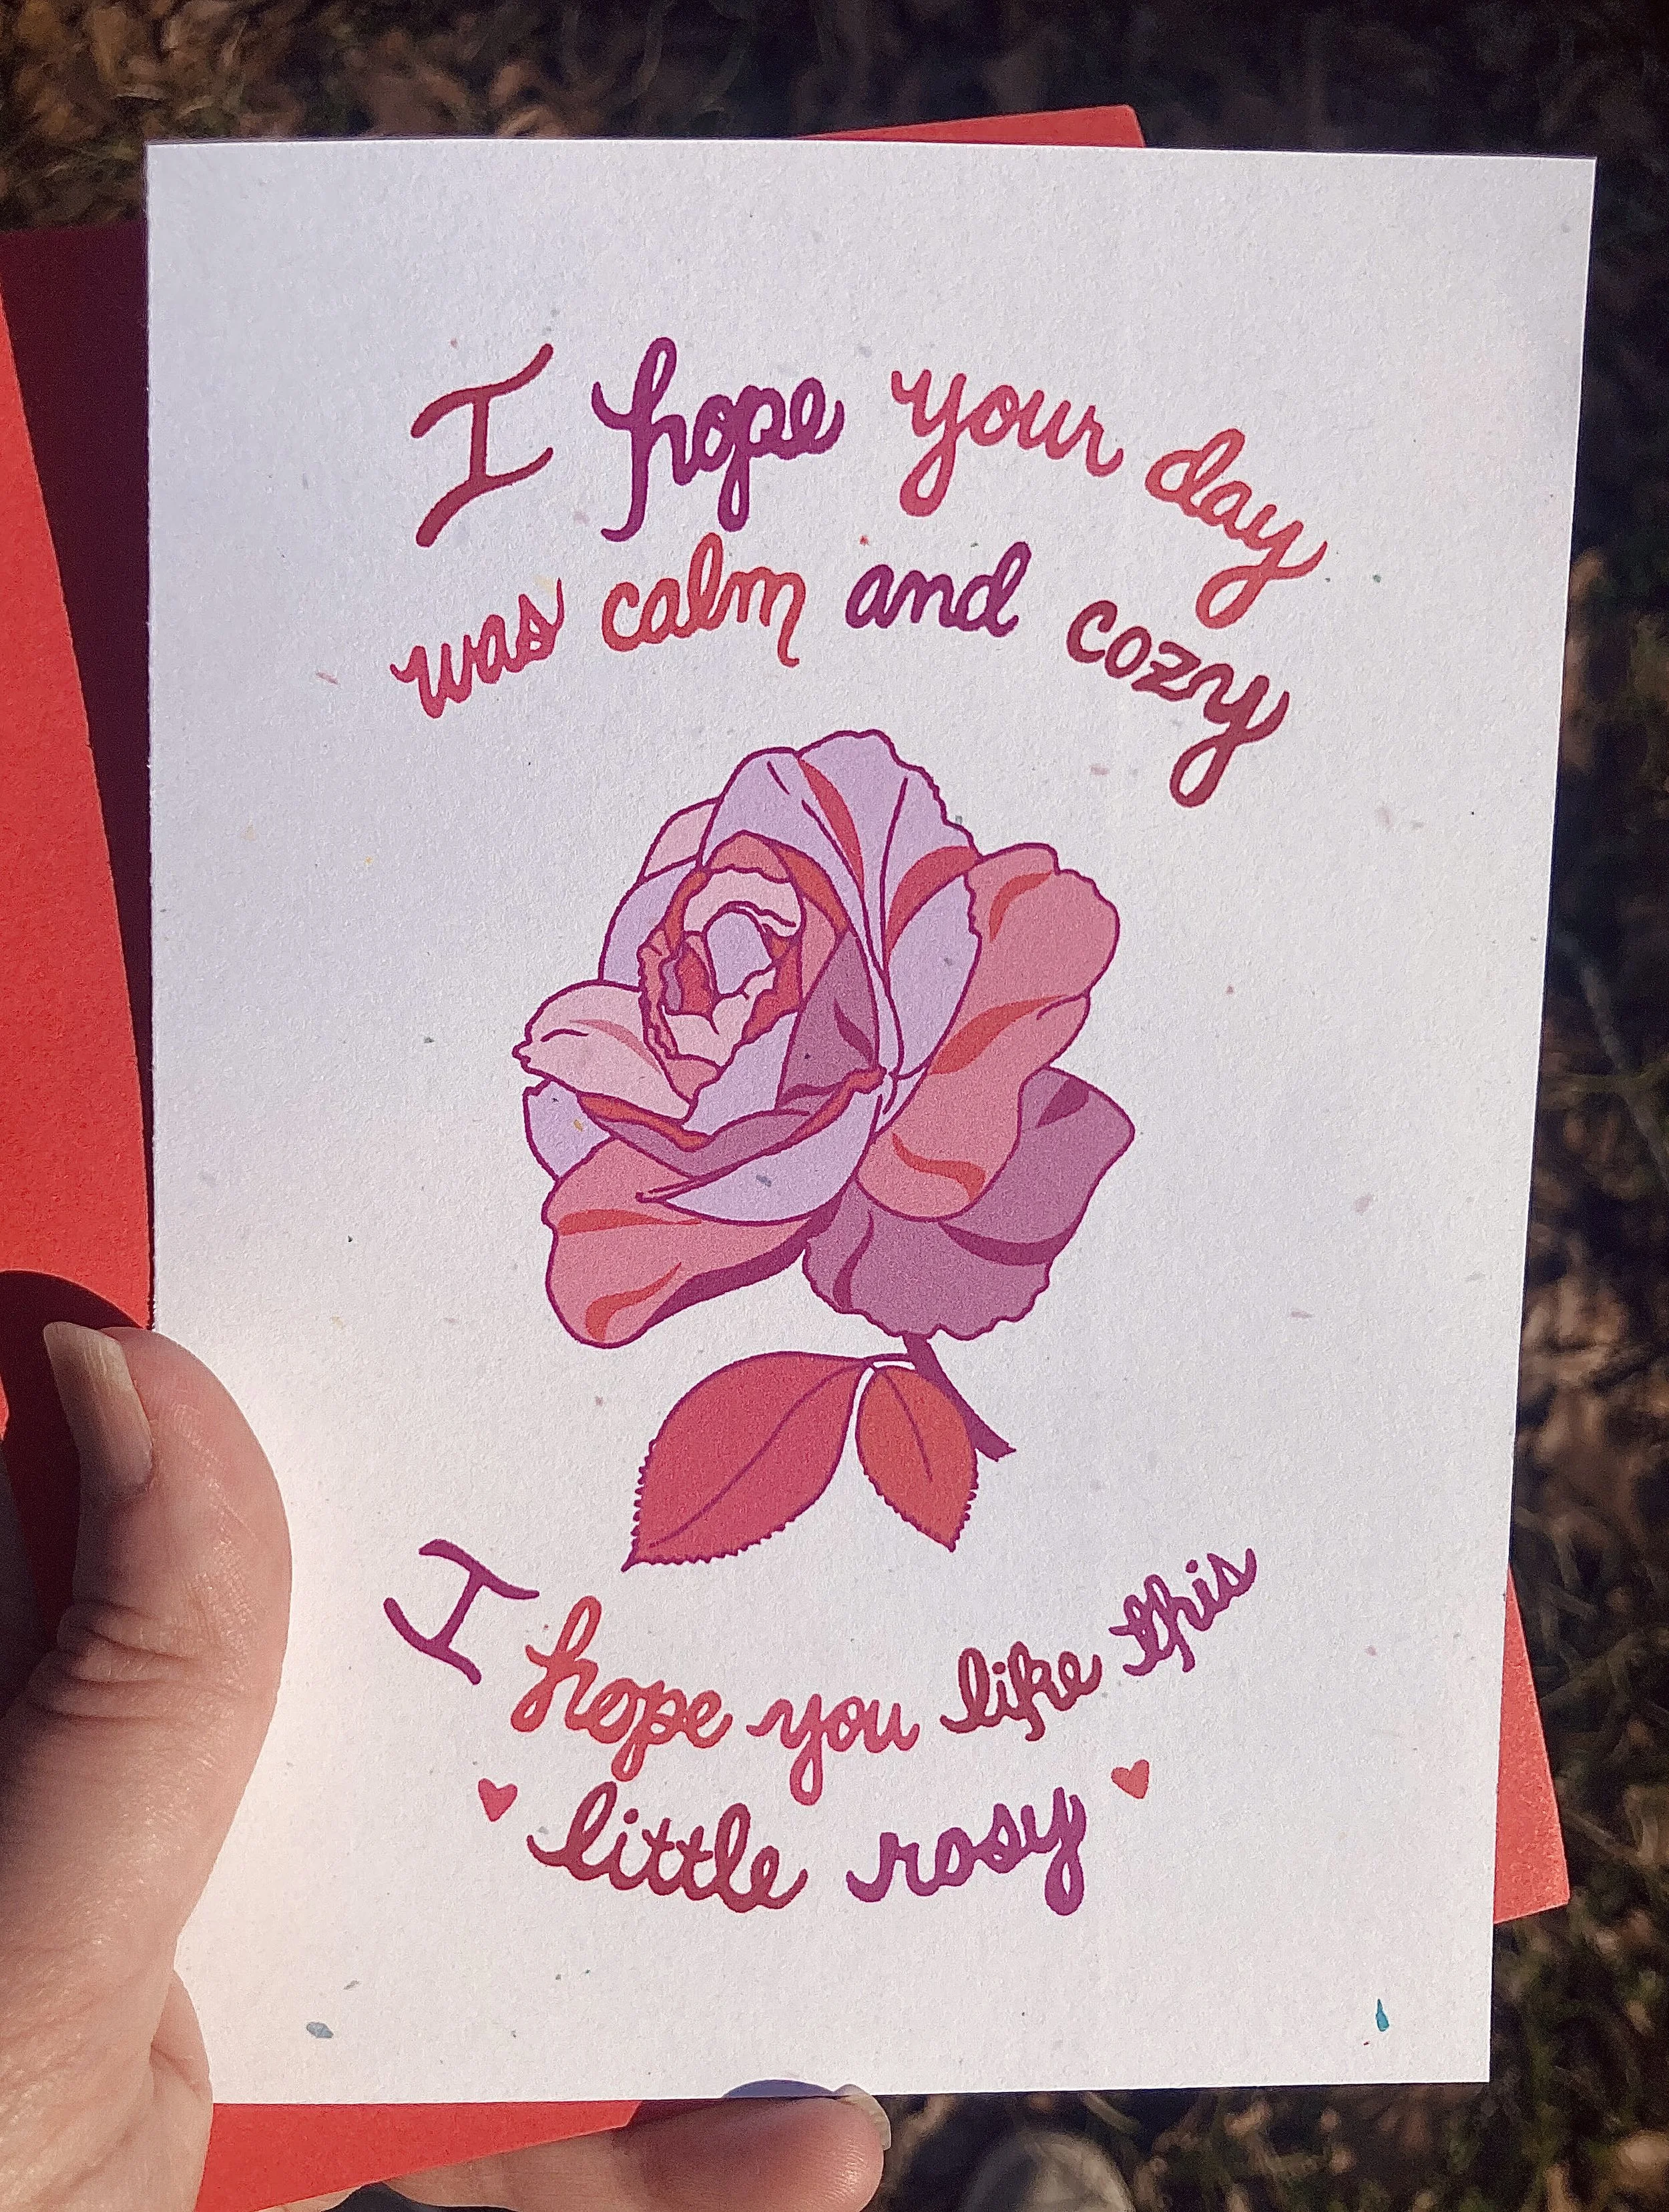 I hope your day
was calm and cozy
I hope you like this
little rosy